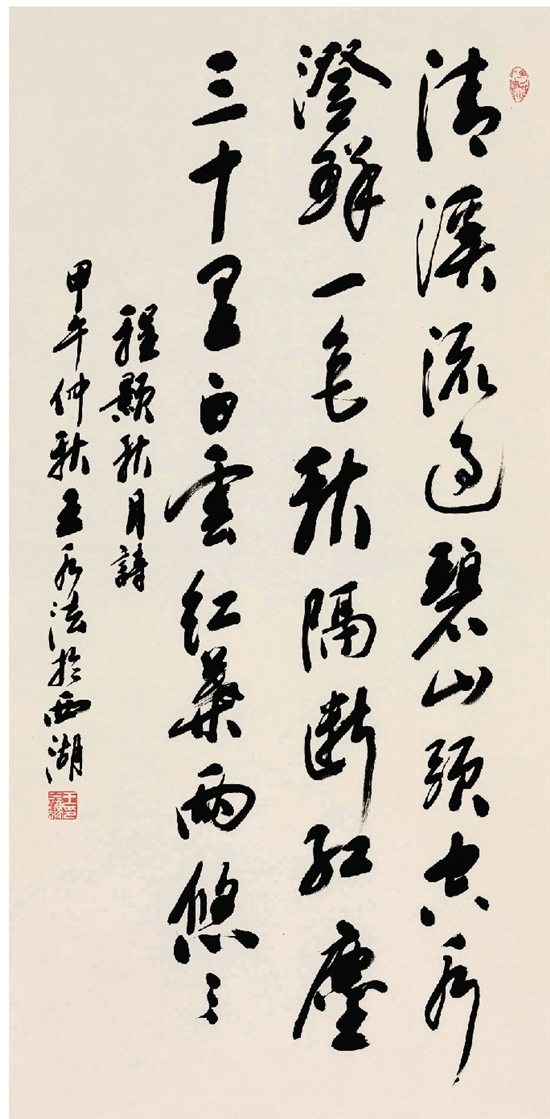 清溪流過碧山頭空水
澄鮮一色秋隔斷紅塵
三十里白雲紅葉兩悠々
程顥秋月詩
甲午仲秋王法於西湖